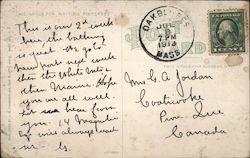 This is our 2nd week
here, the bathing
is great. We go to
Newport next week
then the White Mts &
then Maine. Hope
you are all well.
hear from
you 14 Magnolia
always
OAK BLUFFS
7 PM
1913
MASS
Mrs. C. A. Jordan
Coaticooke
Prov. Que
Canada